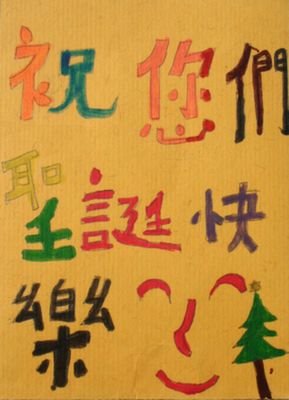 祝您們
聖誕快
樂